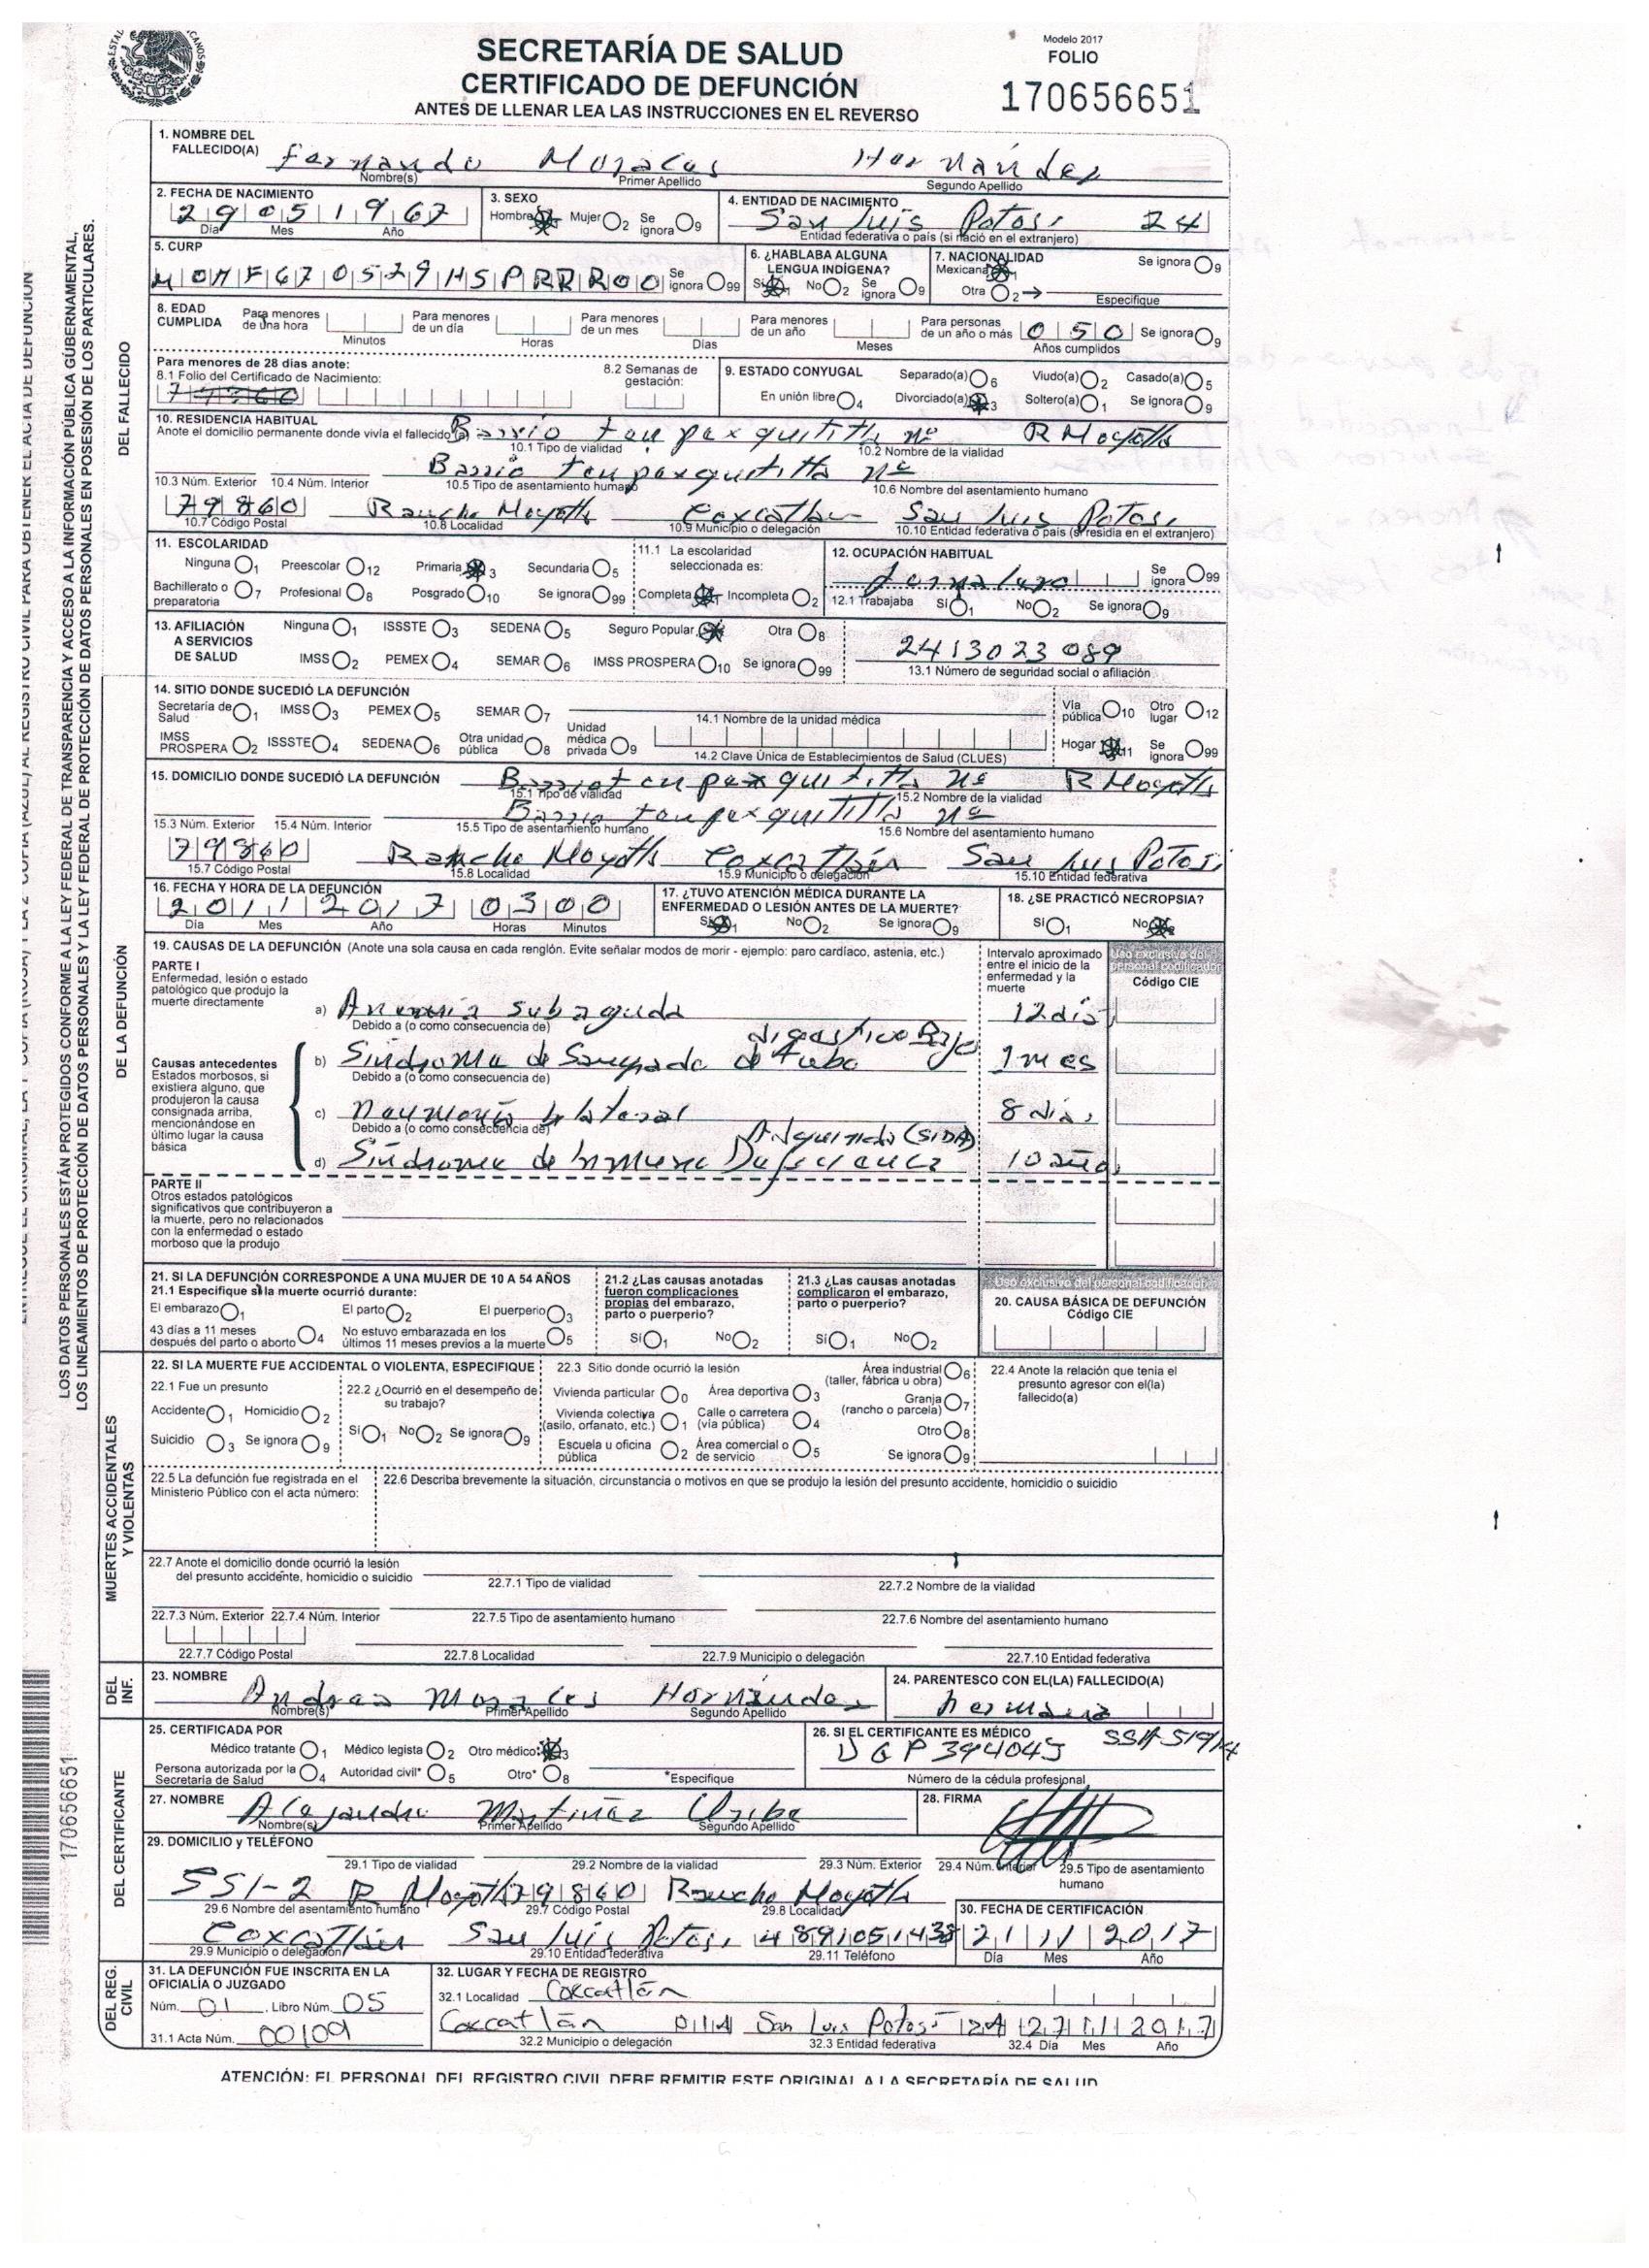 SECRETARÍA DE SALUD
CERTIFICADO DE DEFUNCIÓN
ANTES DE LLENAR LEA LAS INSTRUCCIONES EN EL REVERSO
Modelo 2017
FOLIO
170656651
1. NOMBRE DEL FALLECIDO(A) Fernando Morales Hernández
Nombre(s) Primer Apellido Segundo Apellido
2. FECHA DE NACIMIENTO 29 05 1967
Día Mes Año
3. SEXO Hombre Mujer 2 Se ignora 9
4. ENTIDAD DE NACIMIENTO San Luis Potosí 24
Entidad federativa o país (si nació en el extranjero)
5. CURP MOHF670529HSPRRR00 Se ignora 99
6. ¿HABLABA ALGUNA LENGUA INDÍGENA? Sí 1 No 2 Se ignora 9
7. NACIONALIDAD Mexicana 1 Otra 2 Especifique Se ignora 9
8. EDAD CUMPLIDA Para menores de una hora Minutos Para menores de un día Horas Para menores de un mes Días Para menores de un año Meses Para personas de un año o más 050 Años cumplidos Se ignora 9
Para menores de 28 días anote:
8.1 Folio del Certificado de Nacimiento: 79860
8.2 Semanas de gestación:
9. ESTADO CONYUGAL Separado(a) 6 Viudo(a) 2 Casado(a) 5
En unión libre 4 Divorciado(a) 3 Soltero(a) 1 Se ignora 9
10. RESIDENCIA HABITUAL
Anote el domicilio permanente donde vivía el fallecido(a) Barrio nº R Moyotla
10.1 Tipo de vialidad 10.2 Nombre de la vialidad
Barrio nº
10.3 Núm. Exterior 10.4 Núm. Interior 10.5 Tipo de asentamiento humano 10.6 Nombre del asentamiento humano
79860 Rancho Moyotla Coxcatlan San Luis Potosí
10.7 Código Postal 10.8 Localidad 10.9 Municipio o delegación 10.10 Entidad federativa o país (si residía en el extranjero)
11. ESCOLARIDAD
Ninguna 1 Preescolar 12 Primaria 3 Secundaria 5
Bachillerato o preparatoria 7 Profesional 8 Posgrado 10 Se ignora 99
11.1 La escolaridad seleccionada es:
Completa 1 Incompleta 2
12. OCUPACIÓN HABITUAL
Jornalero Se ignora 99
12.1 Trabajaba SÍ 1 No 2 Se ignora 9
13. AFILIACIÓN A SERVICIOS DE SALUD
Ninguna 1 ISSSTE 3 SEDENA 5 Seguro Popular Otra 8
IMSS 2 PEMEX 4 SEMAR 6 IMSS PROSPERA 10 Se ignora 99
2413023089
13.1 Número de seguridad social o afiliación
14. SITIO DONDE SUCEDIÓ LA DEFUNCIÓN
Secretaría de Salud 1 IMSS 3 PEMEX 5 SEMAR 7
14.1 Nombre de la unidad médica
Vía pública 10 Otro lugar 12
IMSS PROSPERA 2 ISSSTE 4 SEDENA 6 Otra unidad pública 8 Unidad médica privada 9
14.2 Clave Única de Establecimientos de Salud (CLUES)
Hogar 11 Se ignora 99
15. DOMICILIO DONDE SUCEDIÓ LA DEFUNCIÓN Barrio nº R Moyotla
15.1 Tipo de vialidad 15.2 Nombre de la vialidad
Barrio nº
15.3 Núm. Exterior 15.4 Núm. Interior 15.5 Tipo de asentamiento humano 15.6 Nombre del asentamiento humano
79860 Rancho Moyotla Coxcatlán San Luis Potosí
15.7 Código Postal 15.8 Localidad 15.9 Municipio o delegación 15.10 Entidad federativa
16. FECHA Y HORA DE LA DEFUNCIÓN
20 11 2017 03 00
Día Mes Año Horas Minutos
17. ¿TUVO ATENCIÓN MÉDICA DURANTE LA ENFERMEDAD O LESIÓN ANTES DE LA MUERTE?
Sí 1 No 2 Se ignora 9
18. ¿SE PRACTICÓ NECROPSIA?
SÍ 1 No
19. CAUSAS DE LA DEFUNCIÓN (Anote una sola causa en cada renglón. Evite señalar modos de morir - ejemplo: paro cardíaco, astenia, etc.)
Intervalo aproximado entre el inicio de la enfermedad y la muerte
Uso exclusivo del personal codificador
Código CIE
PARTE I
Enfermedad, lesión o estado patológico que produjo la muerte directamente
a) Anemia subaguda 12 días
Debido a (o como consecuencia de)
digestivo Bajo
b) Síndrome de Sangrado de Tubo 1 mes
Debido a (o como consecuencia de)
Causas antecedentes
Estados morbosos, si existiera alguno, que produjeron la causa consignada arriba, mencionándose en último lugar la causa básica
c) neumonía bilateral 8 días
Debido a (o como consecuencia de)
Adquirida (SIDA)
d) Síndrome de Inmuno Deficiencia 10 años
PARTE II
Otros estados patológicos significativos que contribuyeron a la muerte, pero no relacionados con la enfermedad o estado morboso que la produjo
21. SI LA DEFUNCIÓN CORRESPONDE A UNA MUJER DE 10 A 54 AÑOS
21.1 Especifique si la muerte ocurrió durante:
El embarazo 1 El parto 2 El puerperio 3
43 días a 11 meses después del parto o aborto 4 No estuvo embarazada en los últimos 11 meses previos a la muerte 5
21.2 ¿Las causas anotadas fueron complicaciones propias del embarazo, parto o puerperio?
SÍ 1 No 2
21.3 ¿Las causas anotadas complicaron el embarazo, parto o puerperio?
SÍ 1 No 2
Uso exclusivo del personal codificador
20. CAUSA BÁSICA DE DEFUNCIÓN
Código CIE
22. SI LA MUERTE FUE ACCIDENTAL O VIOLENTA, ESPECIFIQUE
22.1 Fue un presunto
Accidente 1 Homicidio 2
Suicidio 3 Se ignora 9
22.2 ¿Ocurrió en el desempeño de su trabajo?
Sí 1 No 2 Se ignora 9
22.3 Sitio donde ocurrió la lesión
Vivienda particular 0 Área deportiva 3 Área industrial (taller, fábrica u obra) 6
Vivienda colectiva (asilo, orfanato, etc.) 1 Calle o carretera (vía pública) 4 Granja (rancho o parcela) 7
Otro 8
Escuela u oficina pública 2 Área comercial o de servicio 5 Se ignora 9
22.4 Anote la relación que tenia el presunto agresor con el(la) fallecido(a)
22.5 La defunción fue registrada en el Ministerio Público con el acta número:
22.6 Describa brevemente la situación, circunstancia o motivos en que se produjo la lesión del presunto accidente, homicidio o suicidio
22.7 Anote el domicilio donde ocurrió la lesión del presunto accidente, homicidio o suicidio
22.7.1 Tipo de vialidad 22.7.2 Nombre de la vialidad
22.7.3 Núm. Exterior 22.7.4 Núm. Interior 22.7.5 Tipo de asentamiento humano 22.7.6 Nombre del asentamiento humano
22.7.7 Código Postal 22.7.8 Localidad 22.7.9 Municipio o delegación 22.7.10 Entidad federativa
23. NOMBRE Morales Hernández
Nombre(s) Primer Apellido Segundo Apellido
24. PARENTESCO CON EL(LA) FALLECIDO(A)
25. CERTIFICADA POR
Médico tratante 1 Médico legista 2 Otro médico 3
Persona autorizada por la Secretaría de Salud 4 Autoridad civil* 5 Otro* 8 *Especifique
26. SI EL CERTIFICANTE ES MÉDICO
DGP 394045 SSA
Número de la cédula profesional
27. NOMBRE Martínez Uribe
Nombre(s) Primer Apellido Segundo Apellido
28. FIRMA
29. DOMICILIO y TELÉFONO
29.1 Tipo de vialidad 29.2 Nombre de la vialidad 29.3 Núm. Exterior 29.4 Núm. Interior 29.5 Tipo de asentamiento humano
R Moyotla 79860 Rancho Moyotla
29.6 Nombre del asentamiento humano 29.7 Código Postal 29.8 Localidad
30. FECHA DE CERTIFICACIÓN
Coxcatlán San Luis Potosí 21 11 2017
29.9 Municipio o delegación 29.10 Entidad federativa 29.11 Teléfono Día Mes Año
31. LA DEFUNCIÓN FUE INSCRITA EN LA OFICIALÍA O JUZGADO
Núm. 01 , Libro Núm. 05
31.1 Acta Núm. 00109
32. LUGAR Y FECHA DE REGISTRO
32.1 Localidad Coxcatlán
Coxcatlán 014 San Luis Potosí 24 27 11 2017
32.2 Municipio o delegación 32.3 Entidad federativa 32.4 Día Mes Año
ATENCIÓN: EL PERSONAL DEL REGISTRO CIVIL DEBE REMITIR ESTE ORIGINAL A LA SECRETARÍA DE SALUD
DEL FALLECIDO
DE LA DEFUNCIÓN
MUERTES ACCIDENTALES Y VIOLENTAS
DEL INF.
DEL CERTIFICANTE
DEL REG. CIVIL
LOS DATOS PERSONALES ESTÁN PROTEGIDOS CONFORME A LA LEY FEDERAL DE TRANSPARENCIA Y ACCESO A LA INFORMACIÓN PÚBLICA GUBERNAMENTAL,
LOS LINEAMIENTOS DE PROTECCIÓN DE DATOS PERSONALES Y LA LEY FEDERAL DE PROTECCIÓN DE DATOS PERSONALES EN POSESIÓN DE LOS PARTICULARES.
170656651